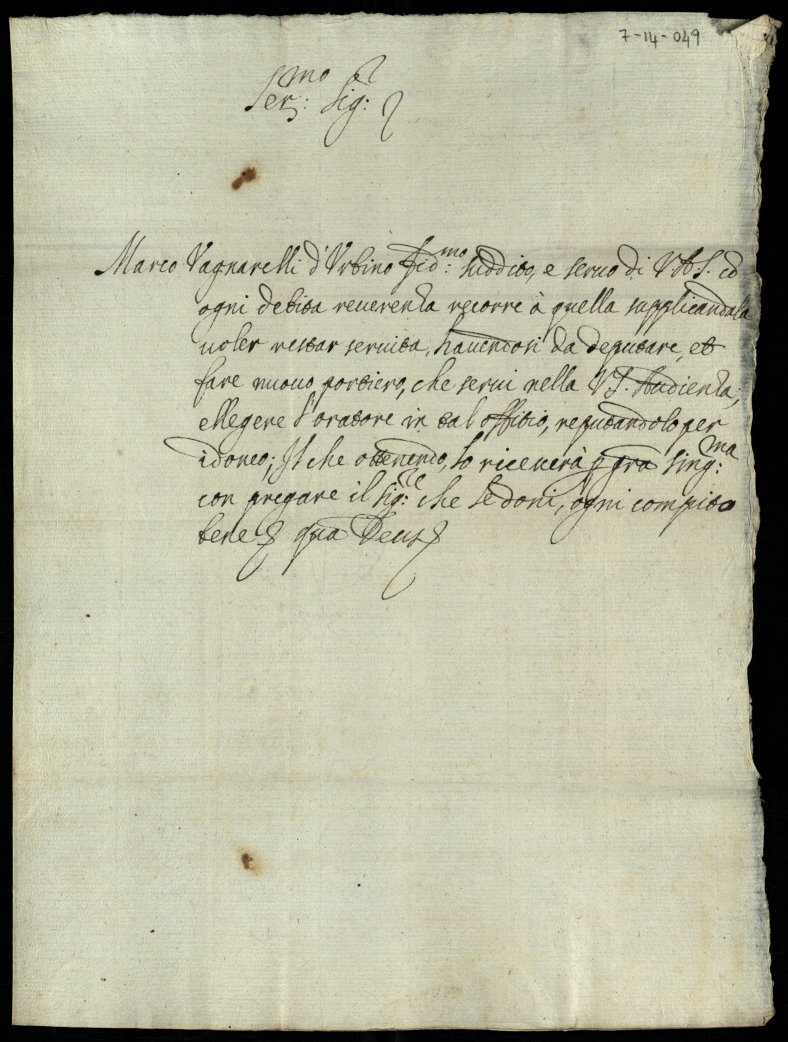 7-14-049
Ser:mo Sig:r
Marco Vagnarelli d'Urbino fid:mo suddito, e servo di V.A.S. co
ogni debita reuerenza recorre à quella supplicandola
uoler restar seruita, hauendosi da deputare, et
fare nuouo portiero, che serui nella V.S. Audienza,
ellegere l'oratore in tal offitio, reputandolo per
idoneo; Il che ottenendo, lo riceuerà p gra sing:ma
con pregare il Sig:re che le doni, ogni compito
bene qua Deus